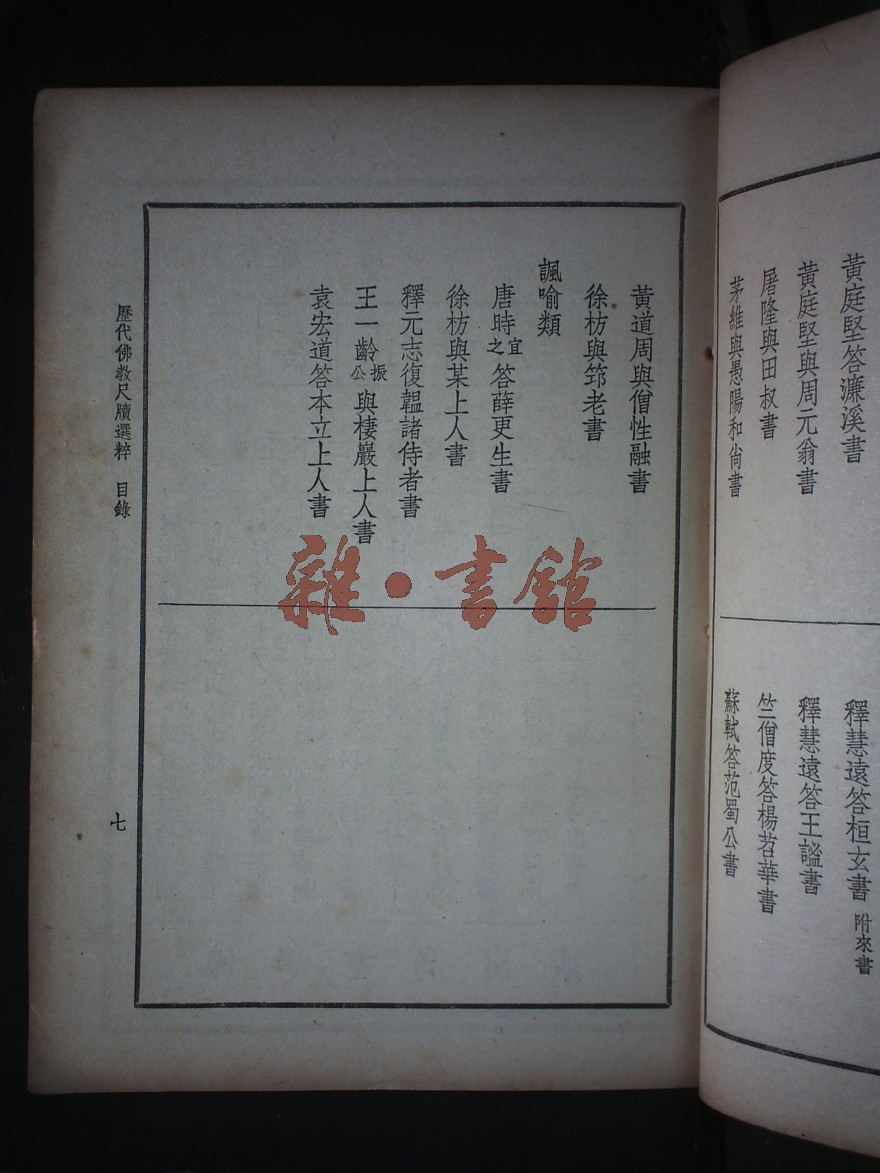 黃庭堅答濂溪書
黃庭堅與周元翁書
屠隆與田叔書
茅維與愚陽和尙書
釋慧遠答桓玄書 附來書
釋慧遠答王謐書
竺僧度答楊苕華書
蘇軾答范蜀公書
黃道周與僧性融書
徐枋與筇老書
諷喻類
唐時宜之答薛更生書
徐枋與某上人書
釋元志復韞諸侍者書
王一齡振公與棲巖上人書
袁宏道答本立上人書
歷代佛教尺牘選粹 目錄
七
雜・書館